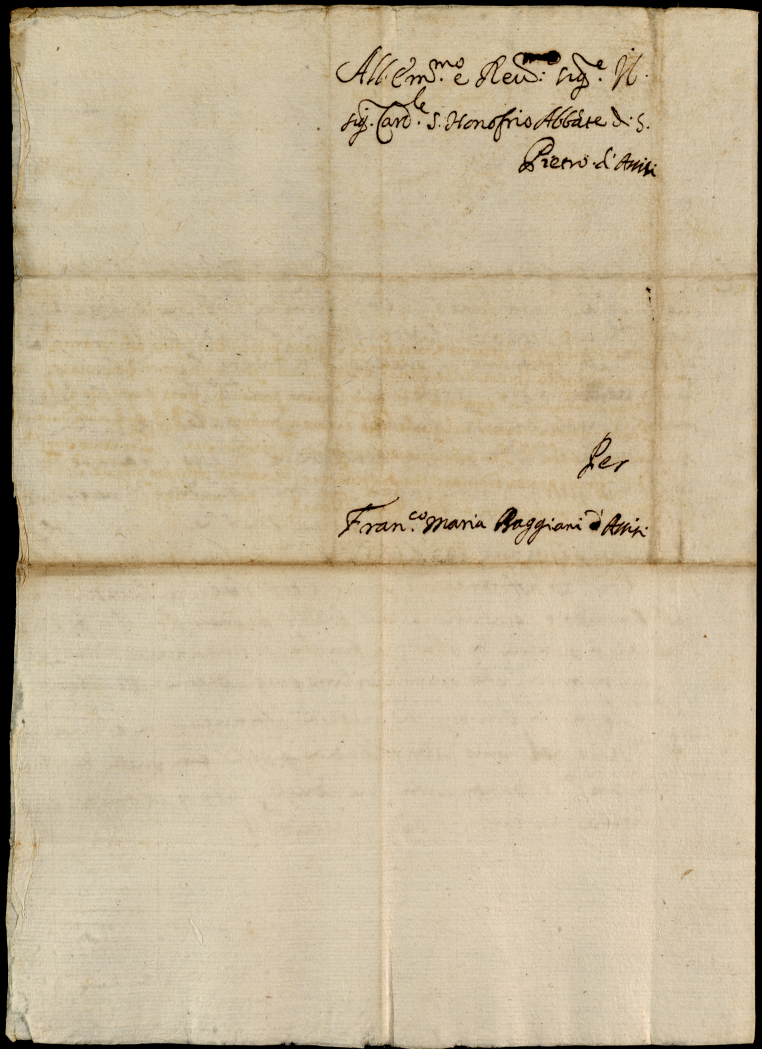 All Em.mo e Reu.mo sig.e Il
sig. Card.le S. Honofrio Abbate di S.
Pietro d'Assisi
Per
Fran.co Maria Baggiani d'Assisi